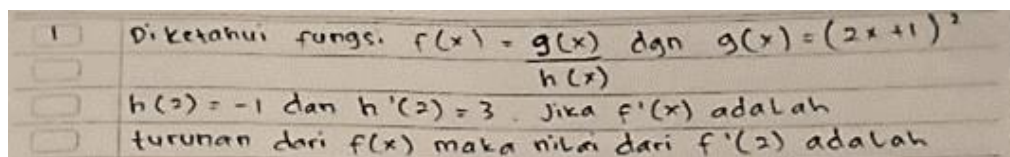 1 Diketahui fungsi f(x) = g(x)/h(x) dgn g(x) = (2x+1)²
h(2) = -1 dan h'(2) = 3. Jika f'(x) adalah
turunan dari f(x) maka nilai dari f'(2) adalah